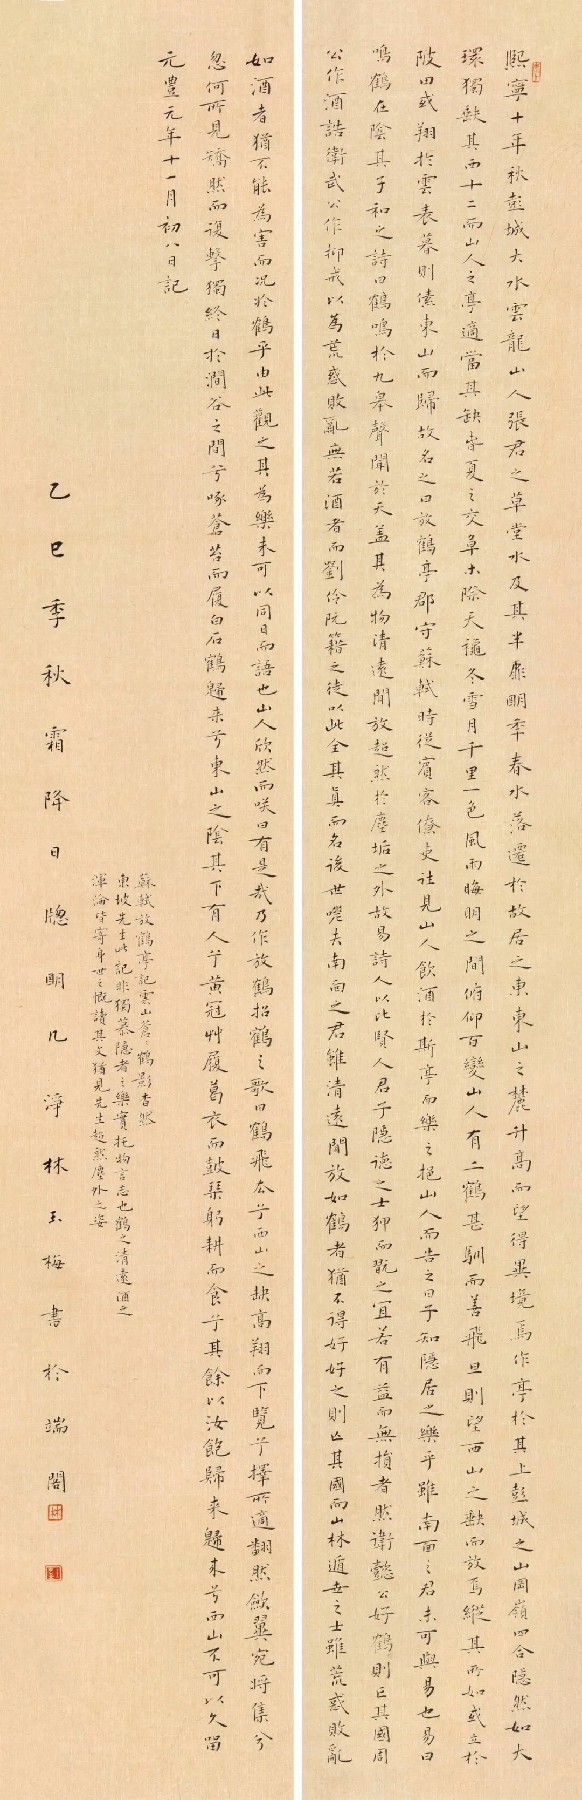 熙寧十年秋彭城大水雲龍山人張君之草堂水及其半扉明年春水落遷於故居之東東山之麓升高而望得異境焉作亭於其上彭城之山岡嶺四合隱然如大
環獨缺其西十二而山人之亭適當其缺春夏之交草木際天秋冬雪月千里一色風雨晦明之間俯仰百變山人有二鶴甚馴而善飛旦則望西山之缺而放焉縱其所如或立於
陂田或翔於雲表暮則傃東山而歸故名之曰放鶴亭郡守蘇軾時從賓客僚吏往見山人飲酒於斯亭而樂之挹山人而告之曰子知隱居之樂乎雖南面之君未可與易也易曰
鳴鶴在陰其子和之詩曰鶴鳴於九皋聲聞於天蓋其為物清遠閒放超然於塵垢之外故易詩人以比賢人君子隱德之士狎而翫之宜若有益而無損者然衛懿公好鶴則亡其國周
公作酒誥衛武公作抑戒以為荒惑敗亂無若酒者而劉伶阮籍之徒以此全其真而名後世嗟夫南面之君雖清遠閒放如鶴者猶不得好好之則亡其國而山林遁世之士雖荒惑敗亂
如酒者猶不能為害而況於鶴乎由此觀之其為樂未可以同日而語也山人欣然而笑曰有是哉乃作放鶴招鶴之歌曰鶴飛去兮西山之缺高翔而下覽兮擇所適翻然斂翼宛將集兮
忽何所見矯然而復擊獨終日於澗谷之間兮啄蒼苔而履白石鶴歸來兮東山之陰其下有人兮黃冠艸履葛衣而鼓琴躬耕而食兮其餘以汝飽歸來歸來兮西山不可以久留
元豐元年十一月初八日記
蘇軾放鶴亭記雲山蒼々鶴影杳然
東坡先生此記非獨慕隱者之樂實托物言志也鶴之清遠酒之
渾淪皆寄身世之慨讀其文猶見先生超然塵外之姿
乙巳季秋霜降日聰明凡淨林玉梅書於端閣